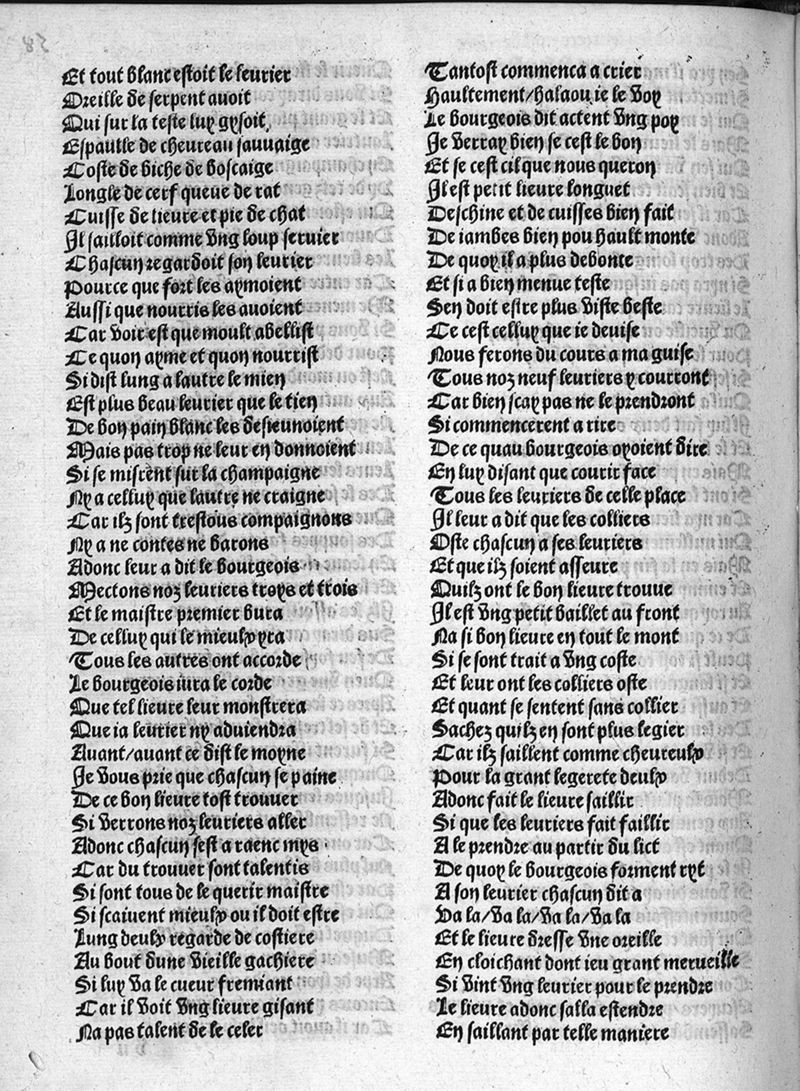 Et tout blanc estoit le leurier
Oreille de serpent auoit
Qui sur la teste luy gysoit
Espaulle de cheureau sauuaige
Coste de biche de boscaige
Longle de cerf queue de rat
Cuisse de lieure et pie de chat
Il sailloit comme vng loup seruier
Chascun regardoit son leurier
Pource que fort les aymoient
Aussi que nourris les auoient
Car voir est que moult abellist
Ce quon ayme et quon nourrist
Si dist lung a lautre le mien
Est plus beau leurier que le tien
De bon pain blanc les desieunoient
Mais pas trop ne leur en donnoient
Si se misrent sur la champaigne
Ny a celluy que lautre ne craigne
Car ilz sont trestous compaignons
Ny a ne contes ne barons
Adonc leur a dit le bourgeois
Mectons noz leuriers troys et trois
Et le maistre premier bura
De celluy qui le mieulx yra
Tous les autres ont accorde
Le bourgeois iura le corde
Que tel lieure leur monstrera
Que ia leurier ny aduiendra
Auant/auant ce dist le moyne
Je vous prie que chascun se paine
De ce bon lieure tost trouuer
Si verrons noz leuriers aller
Adonc chascun sest a raenc mys
Car du trouuer sont talentis
Si sont tous de le querir maistre
Si scaiuent mieulx ou il doit estre
Lung deulx regarde de costiere
Au bout dune vieille gachiere
Si luy va le cueur fremiant
Car il voit vng lieure gisant
Na pas talent de le celer
Tantost commenca a crier
Haultement/halaou ie le voy
Le bourgeois dit actent vng poy
Je verray bien se cest le bon
Et se cest cil que nous queron
Il est petit lieure longuet
Deschine et de cuisses bien fait
De iambes bien pou hault monte
De quoy il a plus debonte
Et si a bien menue teste
Sen doit estre plus viste beste
Ce cest celluy que ie deuise
Nous ferons du cours a ma guise
Tous noz neuf leuriers y courront
Car bien scay pas ne le prendront
Si commencerent a rire
De ce quau bourgeois oyoient dire
En luy disant que courir face
Tous les leuriers de celle place
Il leur a dit que les colliers
Oste chascun a ses leuriers
Et que ilz soient asseure
Quilz ont le bon lieure trouue
Il est vng petit baillet au front
Na si bon lieure en tout le mont
Si se sont trait a vng coste
Et leur ont les colliers oste
Et quant se sentent sans collier
Sachez quilz en sont plus legier
Car ilz saillent comme cheureulx
Pour la grant legerete deulx
Adonc fait le lieure saillir
Si que les leuriers fait faillir
A le prendre au partir du lict
De quoy le bourgeois forment ryt
A son leurier chascun dit a
Va la/va la/va la/va la
Et le lieure dresse vne oreille
En cloichant dont ieu grant merueille
Si vint vng leurier pour le prendre
Le lieure adonc salla estendre
En saillant par telle maniere